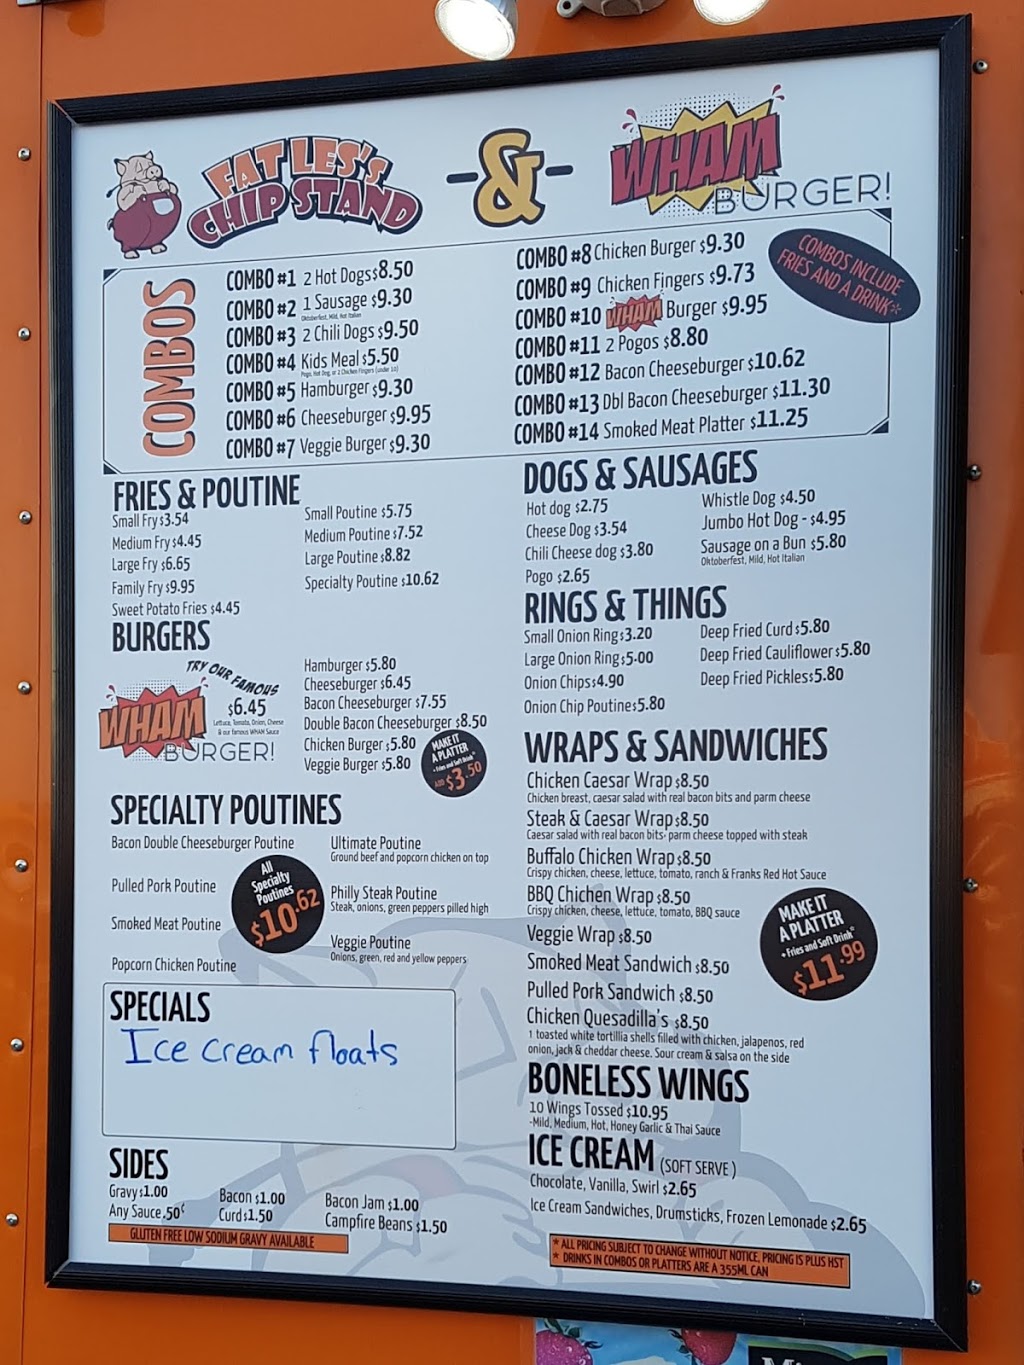 FAT LES'S
CHIP STAND
-&-
WHAM
BURGER!
COMBOS
COMBO #1 2 Hot Dogs $8.50
COMBO #2 1 Sausage $9.30
Oktoberfest, Mild, Hot Italian
COMBO #3 2 Chili Dogs $9.50
COMBO #4 Kids Meal $5.50
Pogo, Hot Dog, or 2 Chicken Fingers (under 10)
COMBO #5 Hamburger $9.30
COMBO #6 Cheeseburger $9.95
COMBO #7 Veggie Burger $9.30
COMBO #8 Chicken Burger $9.30
COMBO #9 Chicken Fingers $9.73
COMBO #10 WHAM Burger $9.95
COMBO #11 2 Pogos $8.80
COMBO #12 Bacon Cheeseburger $10.62
COMBO #13 Dbl Bacon Cheeseburger $11.30
COMBO #14 Smoked Meat Platter $11.25
COMBOS INCLUDE
FRIES AND A DRINK*
FRIES & POUTINE
Small Fry $3.54
Medium Fry $4.45
Large Fry $6.65
Family Fry $9.95
Sweet Potato Fries $4.45
Small Poutine $5.75
Medium Poutine $7.52
Large Poutine $8.82
Specialty Poutine $10.62
BURGERS
TRY OUR FAMOUS
WHAM
BURGER!
$6.45
Lettuce, Tomato, Onion, Cheese
& our famous WHAM Sauce
Hamburger $5.80
Cheeseburger $6.45
Bacon Cheeseburger $7.55
Double Bacon Cheeseburger $8.50
Chicken Burger $5.80
Veggie Burger $5.80
MAKE IT
A PLATTER
+ Fries and Soft Drink*
ADD $3.50
SPECIALTY POUTINES
Bacon Double Cheeseburger Poutine
Pulled Pork Poutine
Smoked Meat Poutine
Popcorn Chicken Poutine
All
Specialty
Poutines
$10.62
Ultimate Poutine
Ground beef and popcorn chicken on top
Philly Steak Poutine
Steak, onions, green peppers pilled high
Veggie Poutine
Onions, green, red and yellow peppers
SPECIALS
Ice cream floats
SIDES
Gravy $1.00
Any Sauce .50¢
Bacon $1.00
Curd $1.50
Bacon Jam $1.00
Campfire Beans $1.50
GLUTEN FREE LOW SODIUM GRAVY AVAILABLE
DOGS & SAUSAGES
Hot dog $2.75
Cheese Dog $3.54
Chili Cheese dog $3.80
Pogo $2.65
Whistle Dog $4.50
Jumbo Hot Dog - $4.95
Sausage on a Bun $5.80
Oktoberfest, Mild, Hot Italian
RINGS & THINGS
Small Onion Ring $3.20
Large Onion Ring $5.00
Onion Chips $4.90
Onion Chip Poutine $5.80
Deep Fried Curd $5.80
Deep Fried Cauliflower $5.80
Deep Fried Pickles $5.80
WRAPS & SANDWICHES
Chicken Caesar Wrap $8.50
Chicken breast, caesar salad with real bacon bits and parm cheese
Steak & Caesar Wrap $8.50
Caesar salad with real bacon bits- parm cheese topped with steak
Buffalo Chicken Wrap $8.50
Crispy chicken, cheese, lettuce, tomato, ranch & Franks Red Hot Sauce
BBQ Chicken Wrap $8.50
Crispy chicken, cheese, lettuce, tomato, BBQ sauce
Veggie Wrap $8.50
Smoked Meat Sandwich $8.50
Pulled Pork Sandwich $8.50
Chicken Quesadilla's $8.50
1 toasted white tortillia shells filled with chicken, jalapenos, red
onion, jack & cheddar cheese. Sour cream & salsa on the side
MAKE IT
A PLATTER
+ Fries and Soft Drink*
$11.99
BONELESS WINGS
10 Wings Tossed $10.95
-Mild, Medium, Hot, Honey Garlic & Thai Sauce
ICE CREAM (SOFT SERVE)
Chocolate, Vanilla, Swirl $2.65
Ice Cream Sandwiches, Drumsticks, Frozen Lemonade $2.65
* ALL PRICING SUBJECT TO CHANGE WITHOUT NOTICE, PRICING IS PLUS HST
* DRINKS IN COMBOS OR PLATTERS ARE A 355ML CAN